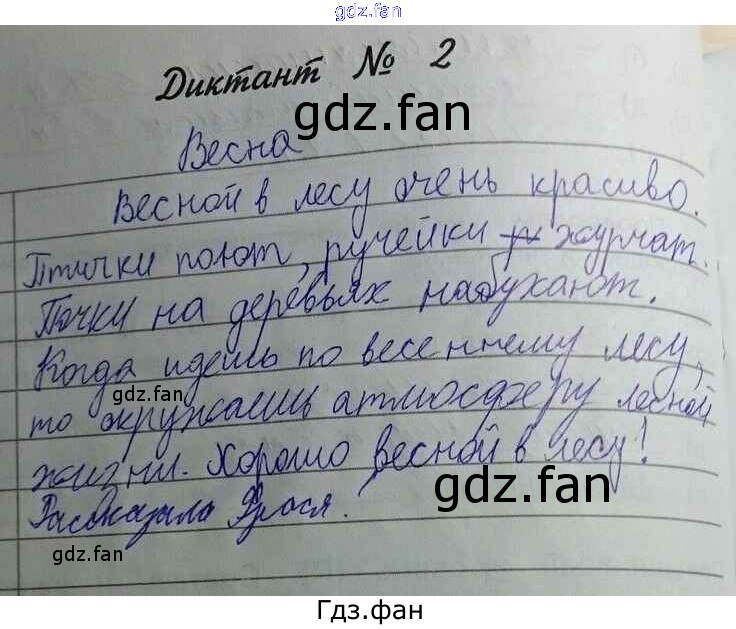 gdz.fan
Диктант № 2
gdz.fan
Весна
Весной в лесу очень красиво.
Птички поют, ручейки журчат.
Почки на деревьях набухают.
Когда идешь по весеннему лесу,
gdz.fan
то окружаешь атмосферу лесной
жизни. Хорошо весной в лесу!
gdz.fan
Рассказала Фрося.
gdz.fan
Гдз.фан